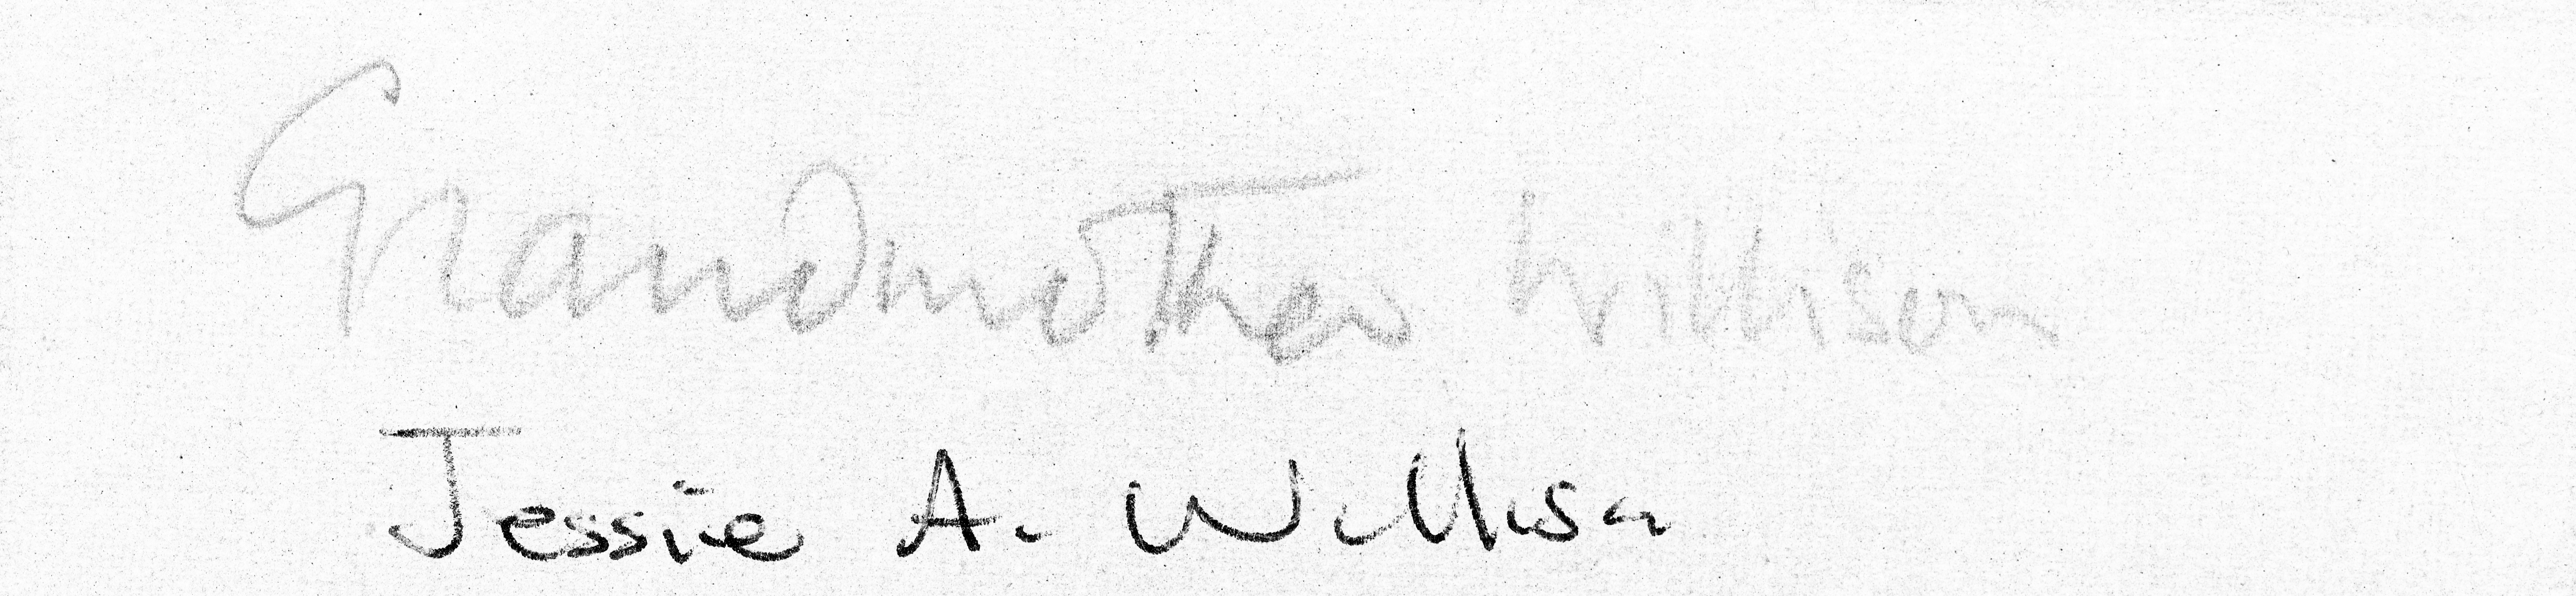 Grandmother Willison
Jessie A. Willison